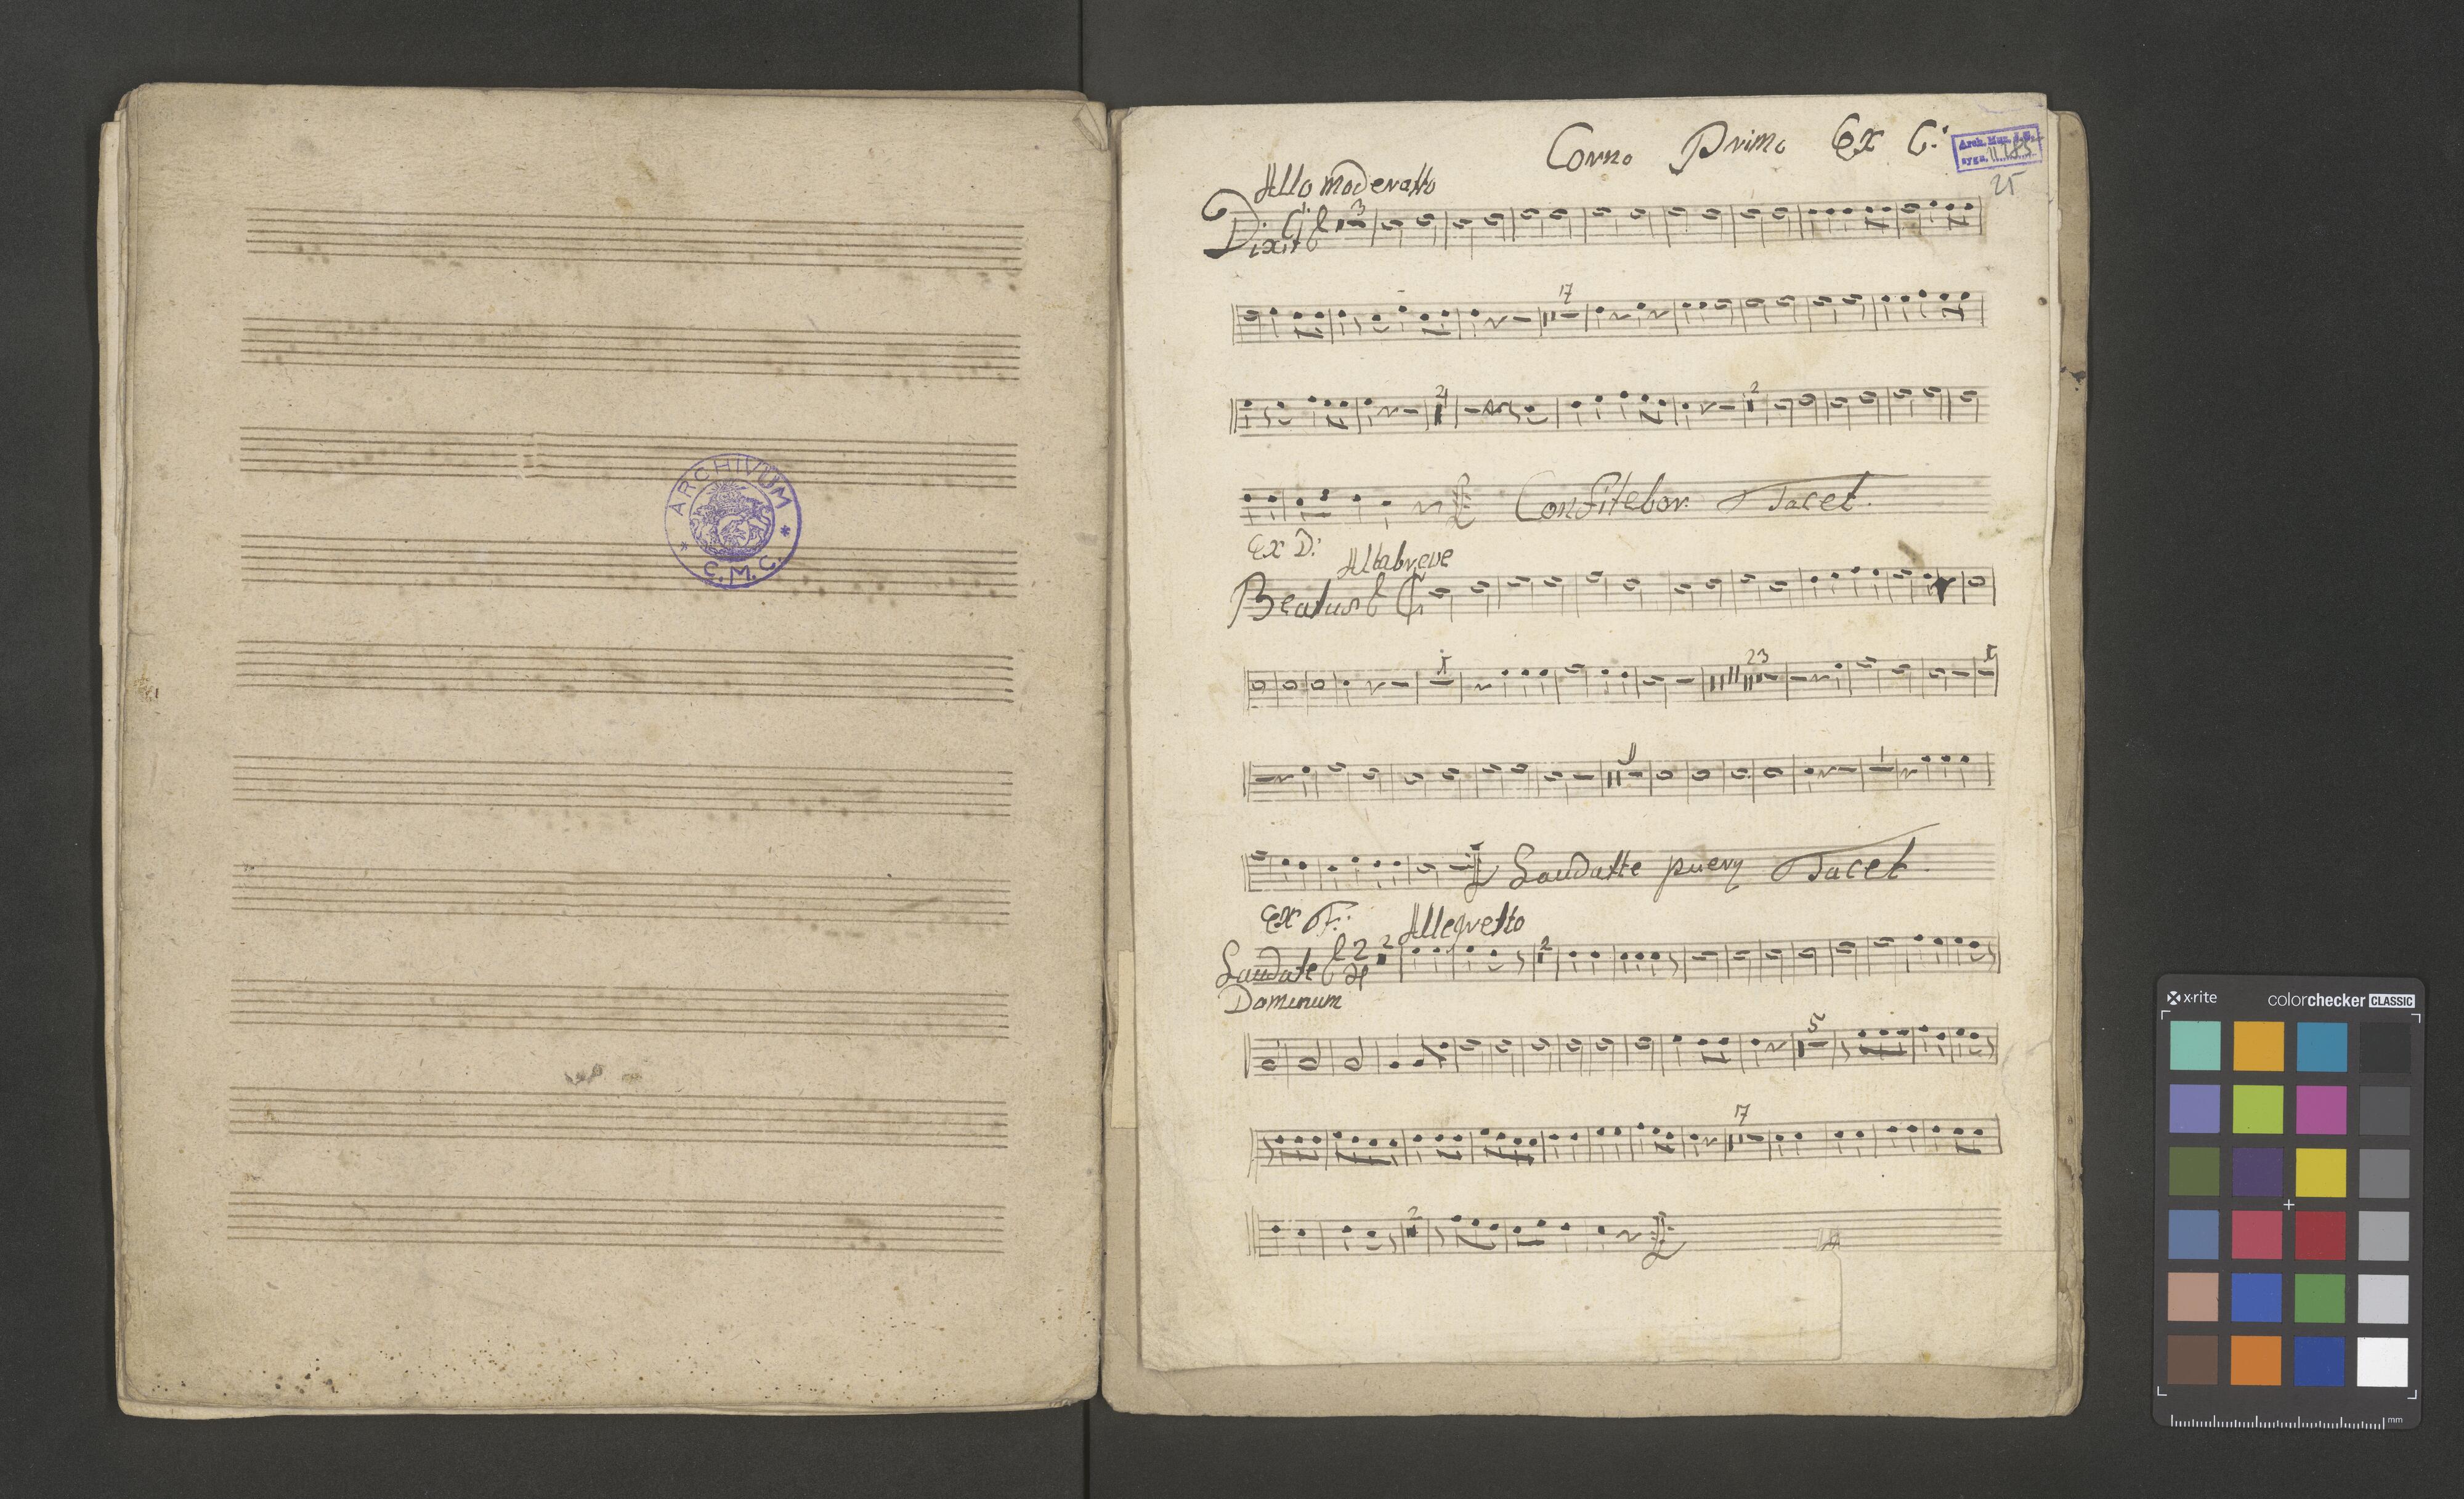 ARCHIVUM
C.M.C.
Corno Primo Ex C:
Arch. Muz. J.G.
sygn. II 185
25
Allo moderatto
Dixit
3
17
2
2
Confitebor. Tacet.
Ex D:
Allabreve
Beatus
1
23
1
Laudatte puery Tacet.
Ex F: Allegretto
Laudate 2 2
4
Dominum
2
5
17
2
x-rite colorchecker CLASSIC
mm